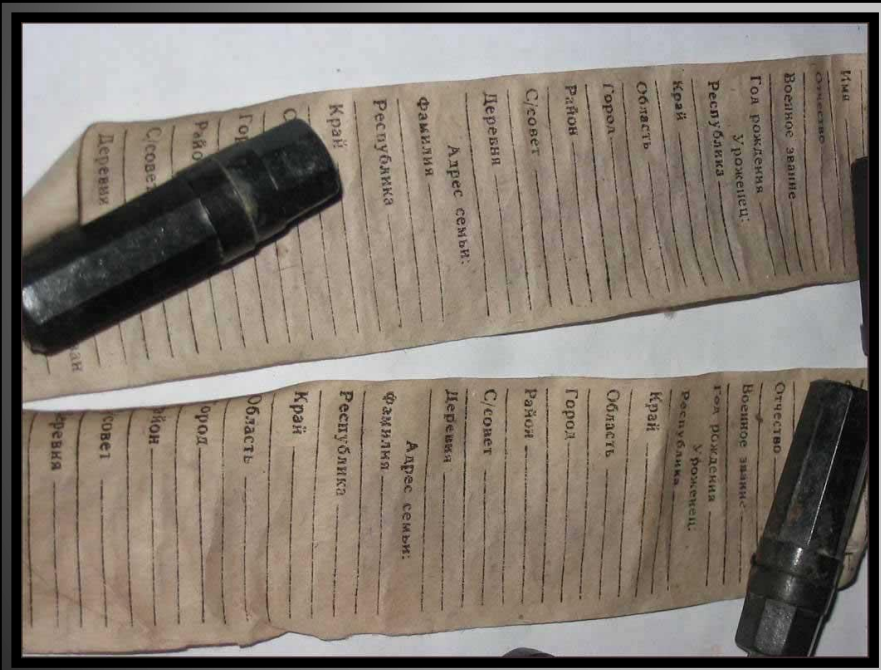 Имя
Отчество
Военное звание
Год рождения
Уроженец:
Республика
Край
Область
Город
Район
С/совет
Деревня
Адрес семьи:
Фамилия
Республика
Край
О
Гор
Райо
С/сове
Деревня
Отчество
Военное звание
Год рождения
Уроженец:
Республика
Край
Область
Город
Район
С/совет
Деревня
Адрес семьи:
Фамилия
Республика
Край
Область
ород
йон
совет
еревня